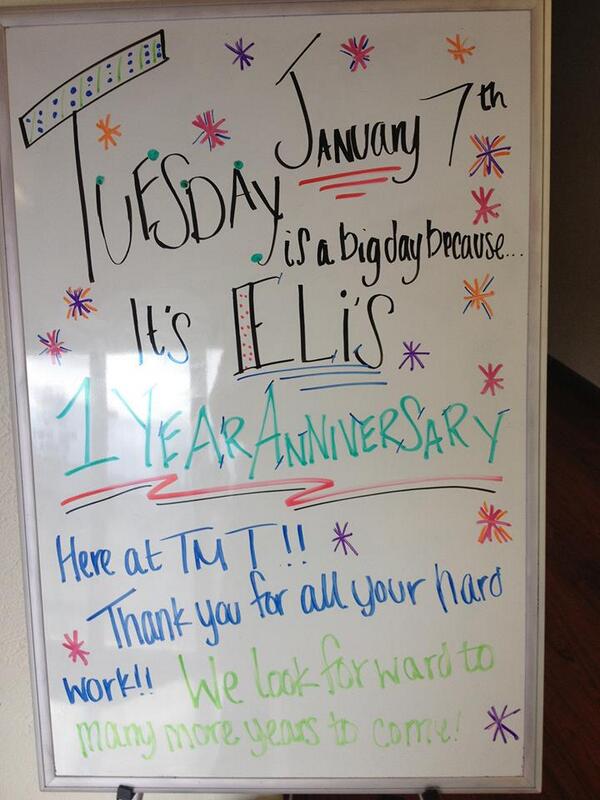 TUESDAY, January 7th
is a big day because...
It's ELi'S
1 YEAR ANNIVERSARY
Here at TMT!!
Thank you for all your hard
work!! We look forward to
many more years to come!